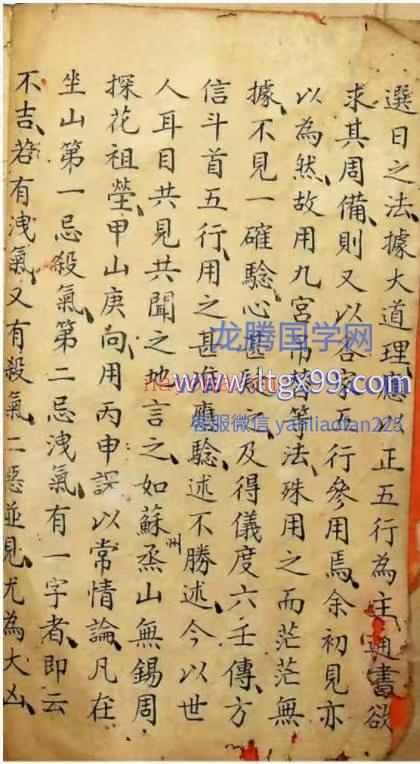 選日之法據大道理應正五行為主通書欲
求其周備則又以各家五行參用焉余初見亦
以為然故用九宮等法殊用之而茫茫無
據不見一確驗心甚疑之及得儀度六壬傳方
信斗首五行用之甚准應驗述不勝述今以世
人耳目共見共聞之地言之如蘇州烝山無錫周
探花祖塋甲山庚向用丙申課以常情論凡在
坐山第一忌殺氣第二忌洩氣有一字者即云
不吉若有洩氣又有殺氣二惡並見尤為大凶
龙腾国学网
www.ltgx99.com
客服微信 yanliaofan225